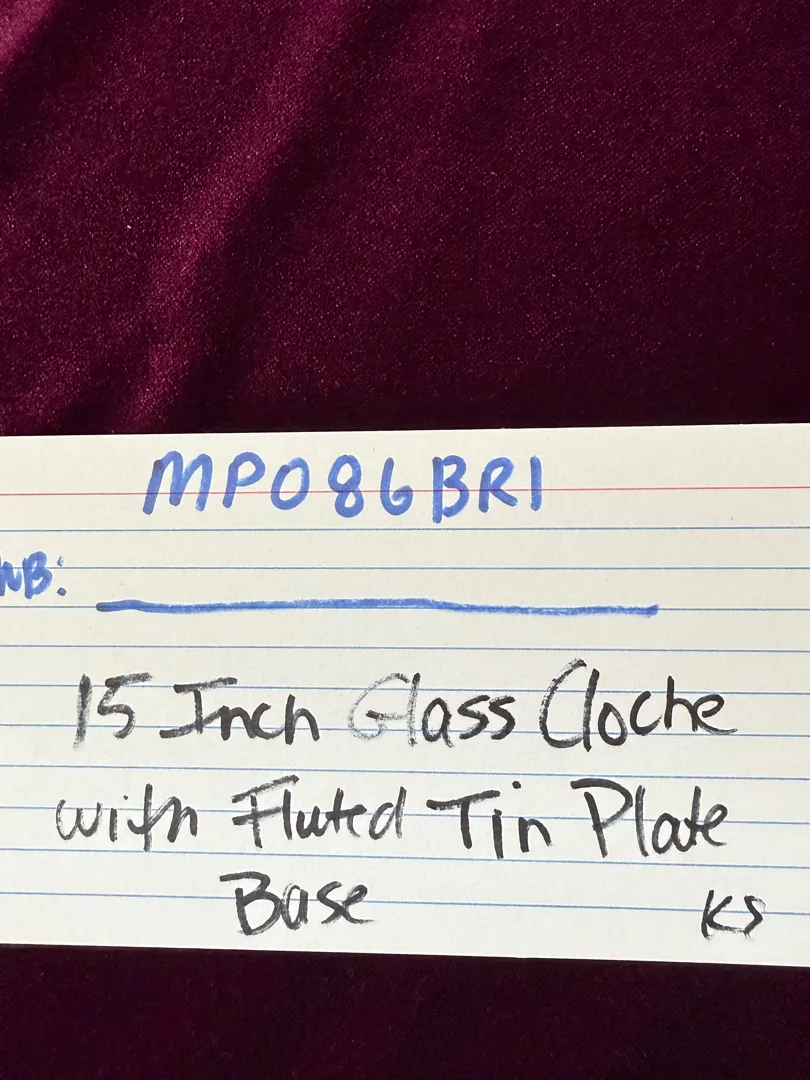 MP086BR1
15 Inch Glass Cloche
with Fluted Tin Plate
Base KS